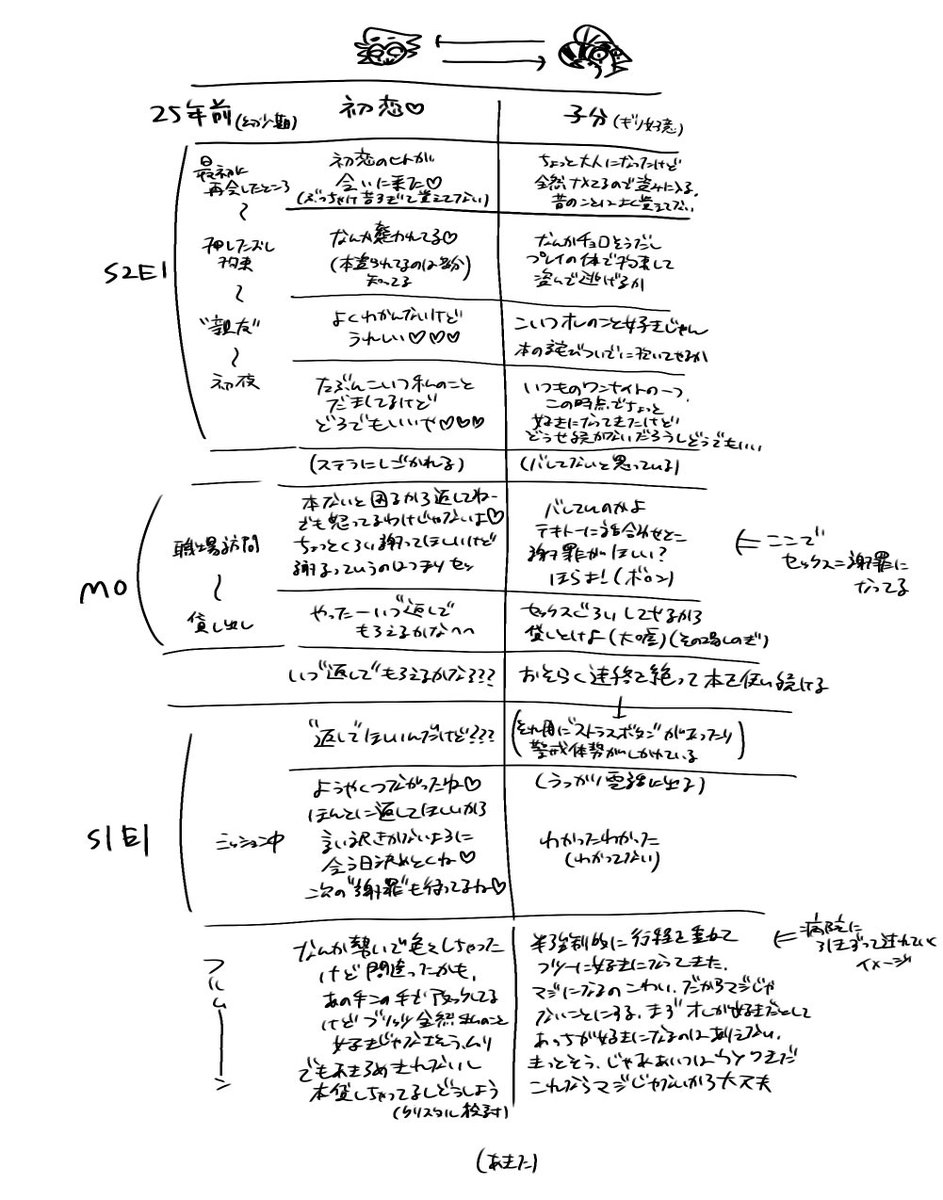 25年前(幼少期)
初恋♡
子分(ギリ好意)
S2E1
最初に
再会したところ
〜
初恋のヒトが
会いに来た♡
(ぶっちゃけ昔すぎて覚えてない)
ちょっと大人になったけど
全然ナメてるので盗みに入る.
昔のことはよく覚えてない
押したおし
拘束
〜
なんか襲われてる♡
(本盗られてるのは多分)
知ってる
なんかチョロそうだし
プレイの体で拘束して
盗んで逃げるか
"親友"
〜
よくわかんないけど
うれしい♡♡♡
こいつオレのこと好きじゃん
本の詫びついでに抱いてやるか
初夜
たぶんこいつ私のこと
だましてるけど
どうでもいいや♡♡♡
いつものワンナイトの一つ.
この時点でちょっと
好きになってきたけど
どうせ続かないだろうしどうでもいい
(ステラにしごかれる)
(バレてないと思っている)
M0
職場訪問
〜
本ないと困るから返してねー
でも怒ってるわけじゃないよ♡
ちょっとくらい謝ってほしいけど
謝るっていうのはつまりセッ
バレていのかよ
テキトーに話合わせとこ
謝罪がほしい?
ほらよ!(ボロン)
⇐ここで
セックス=謝罪に
なってる
貸し出し
やったーいつ"返して"
もらえるかなへへ
セックスぐらいしてやるから
貸しとけよ(大嘘)(その場しのぎ)
いつ"返して"もらえるかな???
おそらく連絡を絶って本を使い続ける
↓
S1E1
"返して"ほしいんだけど???
(それ用に"ストラスボタン"があったり
警戒体勢がしかれている)
ミッション中
ようやくつながったね♡
ほんとに返してほしいから
言い訳きかないように
会う日決めとくね♡
次の"謝罪"も待ってるね♡
(うっかり電話に出る)
わかったわかった
(わかってない)
フルムーン
なんか勢いで色々しちゃった
けど間違ったかも.
あの手この手でアタックしてる
けどブリッツ全然私のこと
好きじゃなさそう.ムリ
でも本をあきらめきれないし
本貸しちゃってるしどうしよう
(クリスタル検討)
半強制的に行程を重ねて
フツーに好きになってきた.
マジになるのこわい.だからマジじゃ
ないことにする.まずオレが好きだとして
あっちが好きになるのはありえない.
きっとそう.じゃあ
これならマジじゃないから大丈夫
⇐病院に
引きずって連れていく
イメージ
(あきた)